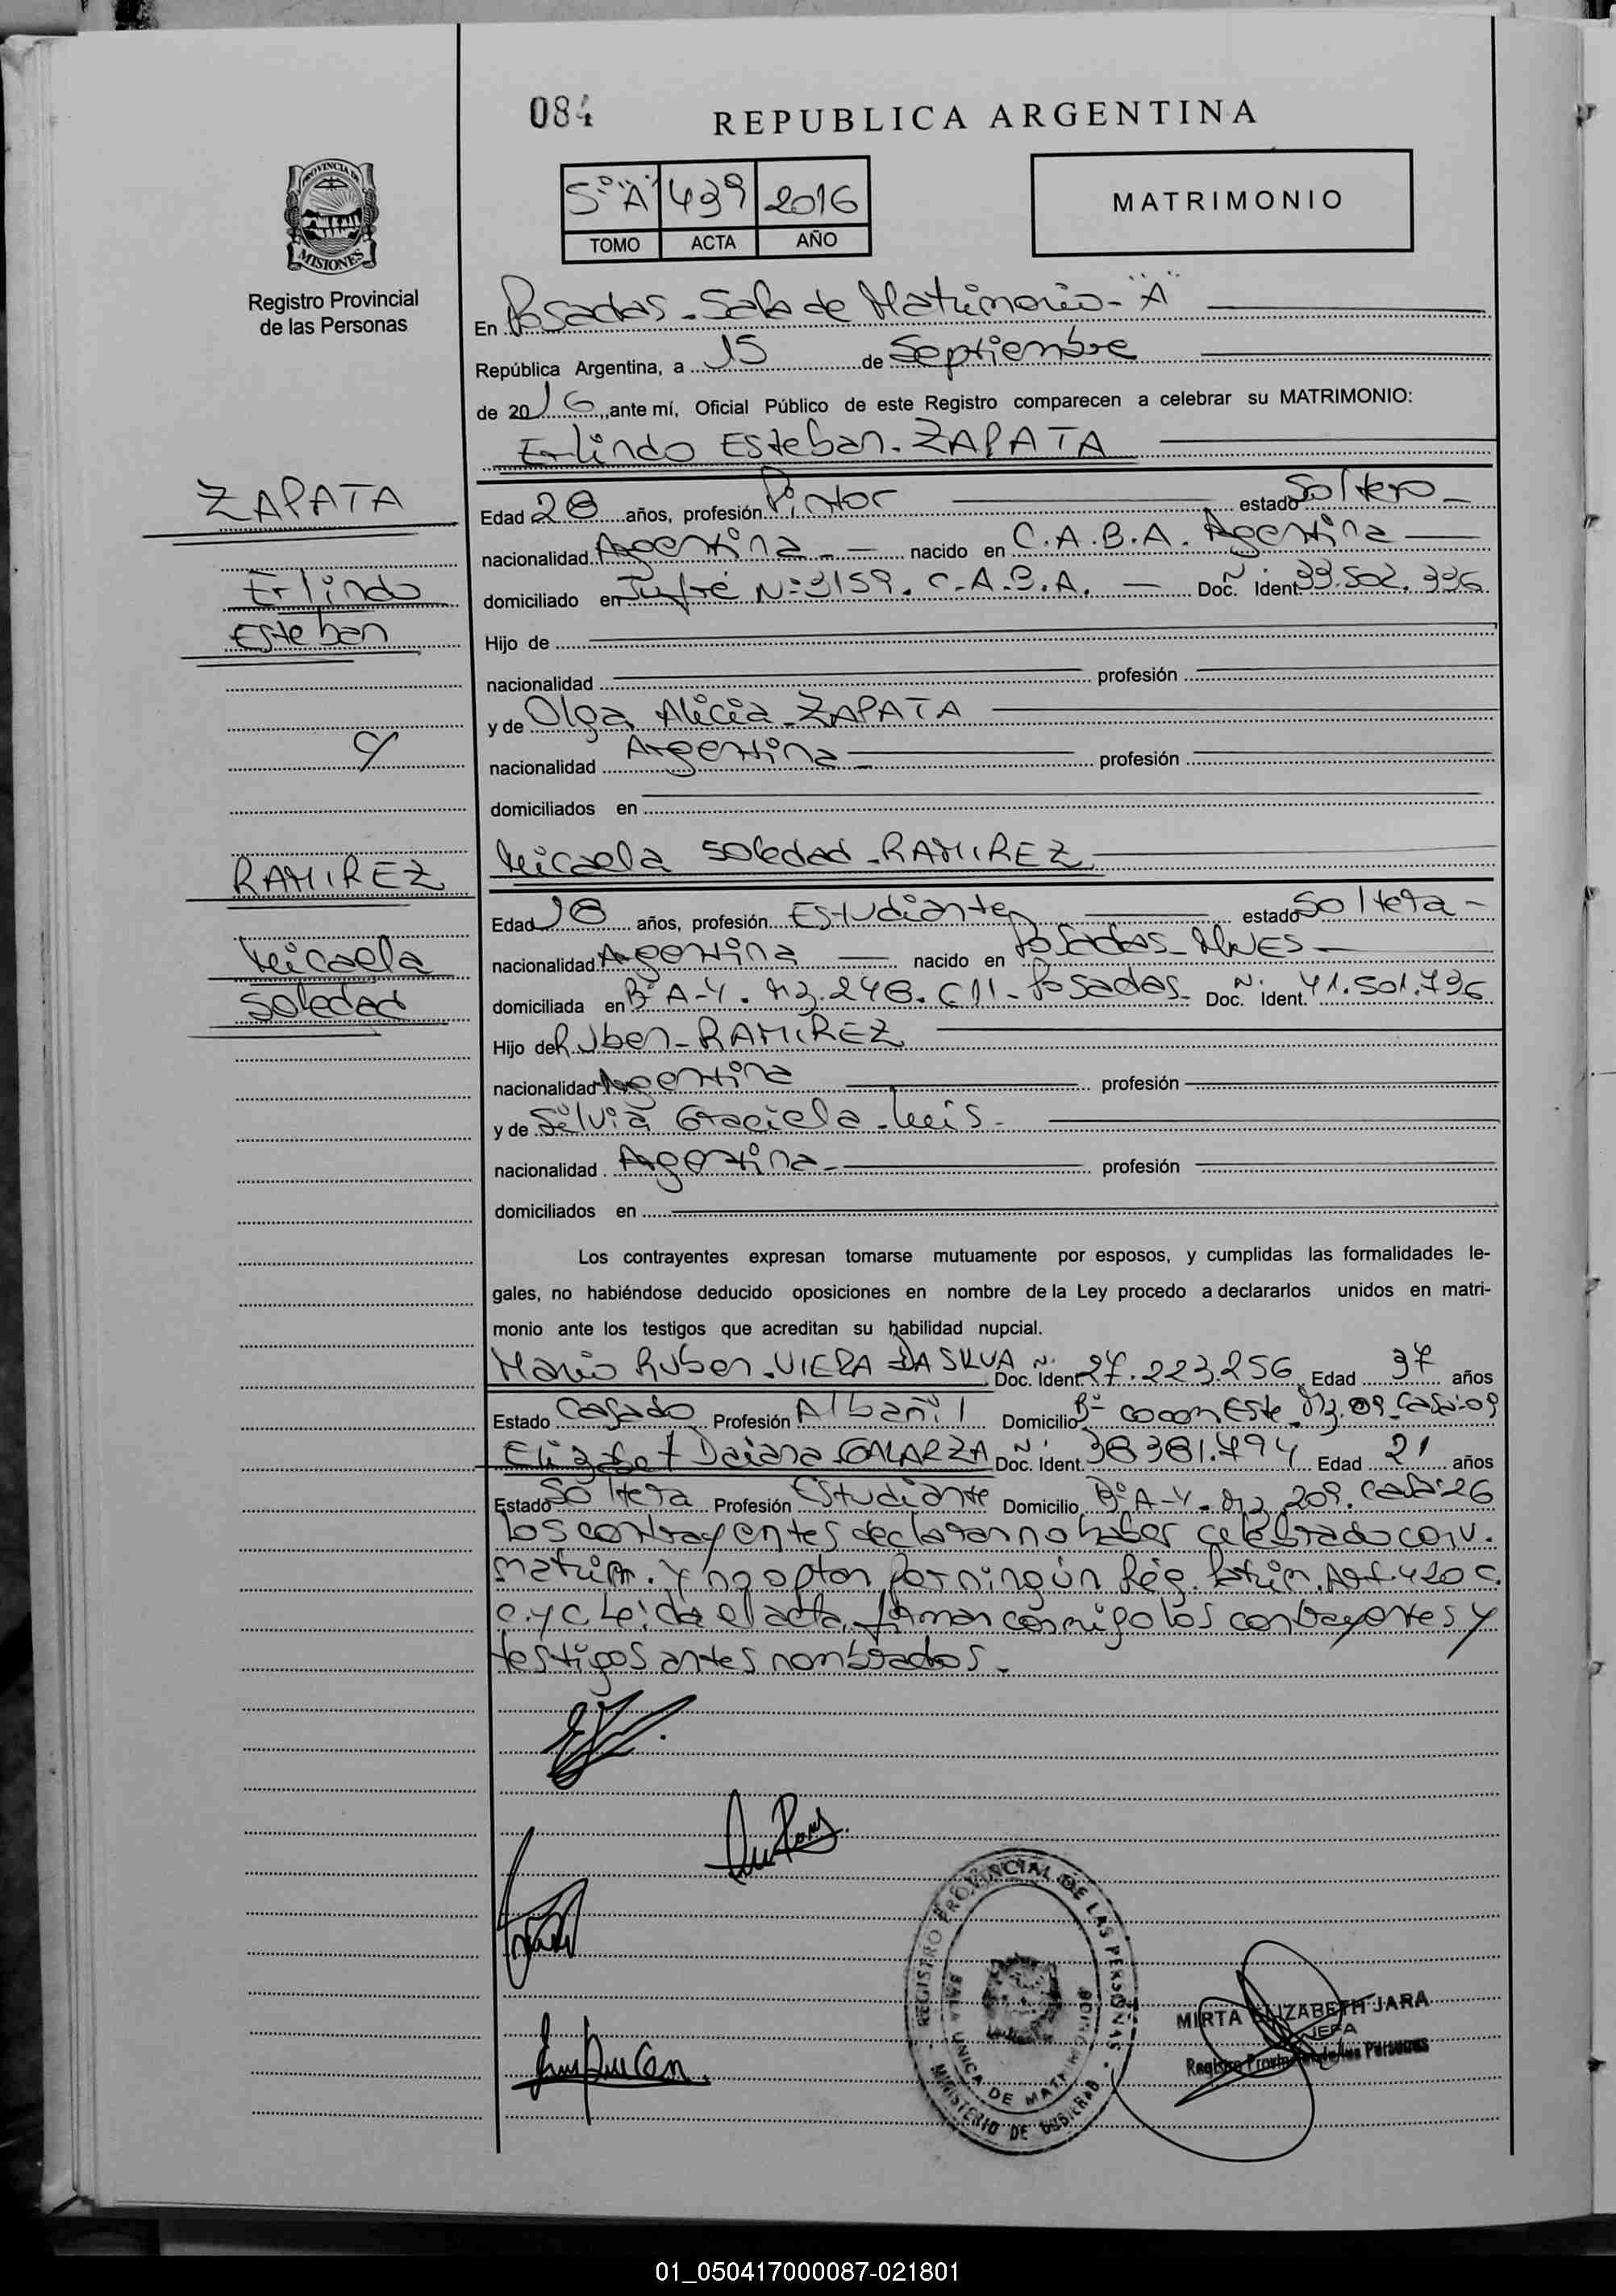 084
REPUBLICA ARGENTINA
5º "A" 439 2016
TOMO ACTA AÑO
MATRIMONIO
PROVINCIA DE
MISIONES
Registro Provincial
de las Personas
En Posadas - Sala de Matrimonio - "A"
República Argentina, a 15 de Septiembre
de 2016, ante mí, Oficial Público de este Registro comparecen a celebrar su MATRIMONIO:
Erlindo Esteban - ZAPATA
ZAPATA
Erlindo
Esteban
Edad 28 años, profesión Pintor estado Soltero -
nacionalidad Argentina - nacido en C.A.B.A. Argentina
domiciliado en Jufré Nº 3159. C.A.B.A. Doc. Ident. Nº 33.502.336
Hijo de
nacionalidad profesión
y de Olga Alicia - ZAPATA
nacionalidad Argentina - profesión
domiciliados en
y
RAMIREZ
Micaela
Soledad
Micaela Soledad - RAMIREZ
Edad 18 años, profesión Estudiante estado Soltera -
nacionalidad Argentina nacido en Posadas - Mnes -
domiciliada en Bº A-4. Mz. 248. C 11 - Posadas - Doc. Ident. Nº 41.501.736
Hijo de Ruben - RAMIREZ
nacionalidad Argentina profesión
y de Silvia Graciela - Meis -
nacionalidad Argentina - profesión
domiciliados en
Los contrayentes expresan tomarse mutuamente por esposos, y cumplidas las formalidades le-
gales, no habiéndose deducido oposiciones en nombre de la Ley procedo a declararlos unidos en matri-
monio ante los testigos que acreditan su habilidad nupcial.
Mario Ruben - VIERA DA SILVA Doc. Ident. Nº 27.223.256 Edad 37 años
Estado Casado Profesión Albañil Domicilio Bº Cocom Este Mz. 09 - Casa: 09
Elizabet Daiana GALARZA Doc. Ident. Nº 38381.794 Edad 21 años
Estado Soltera Profesión Estudiante Domicilio Bº A-4 - Mz 209. Casa: 26
Los contrayentes declaran no haber celebrado conv.
matrim. y no optan por ningún Rég. Patrim. Art. 420 C.
C. y C. Leída el acta, firman conmigo los contrayentes y
testigos antes nombrados -
REGISTRO PROVINCIAL DE LAS PERSONAS
SALA UNICA DE
MINISTERIO DE GOBIERNO
MIRTA ELIZABETH JARA
JEFA
Registro Provincial de las Personas
01_050417000087-021801